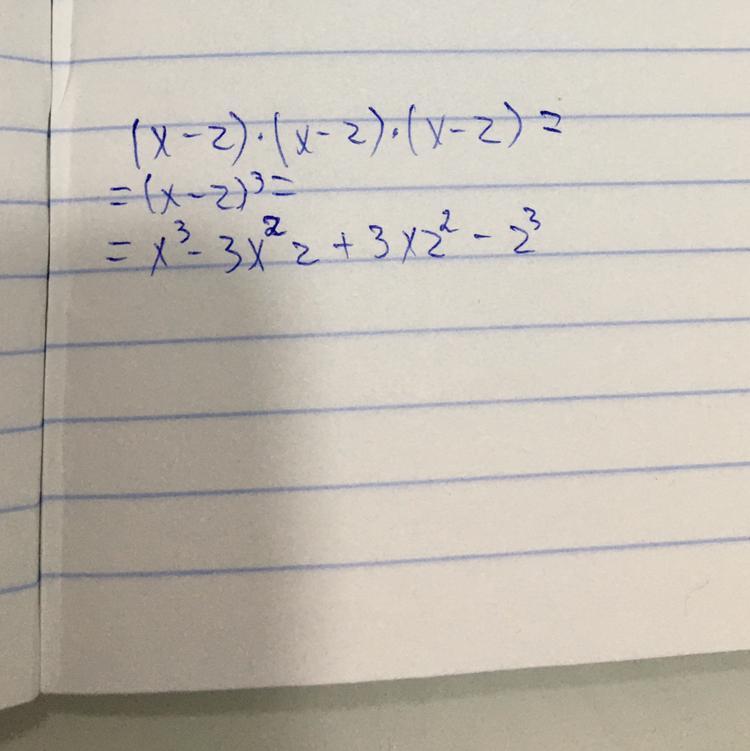 (x-z)·(x-z)·(x-z)=
=(x-z)³=
=x³-3x²z+3xz²-z³